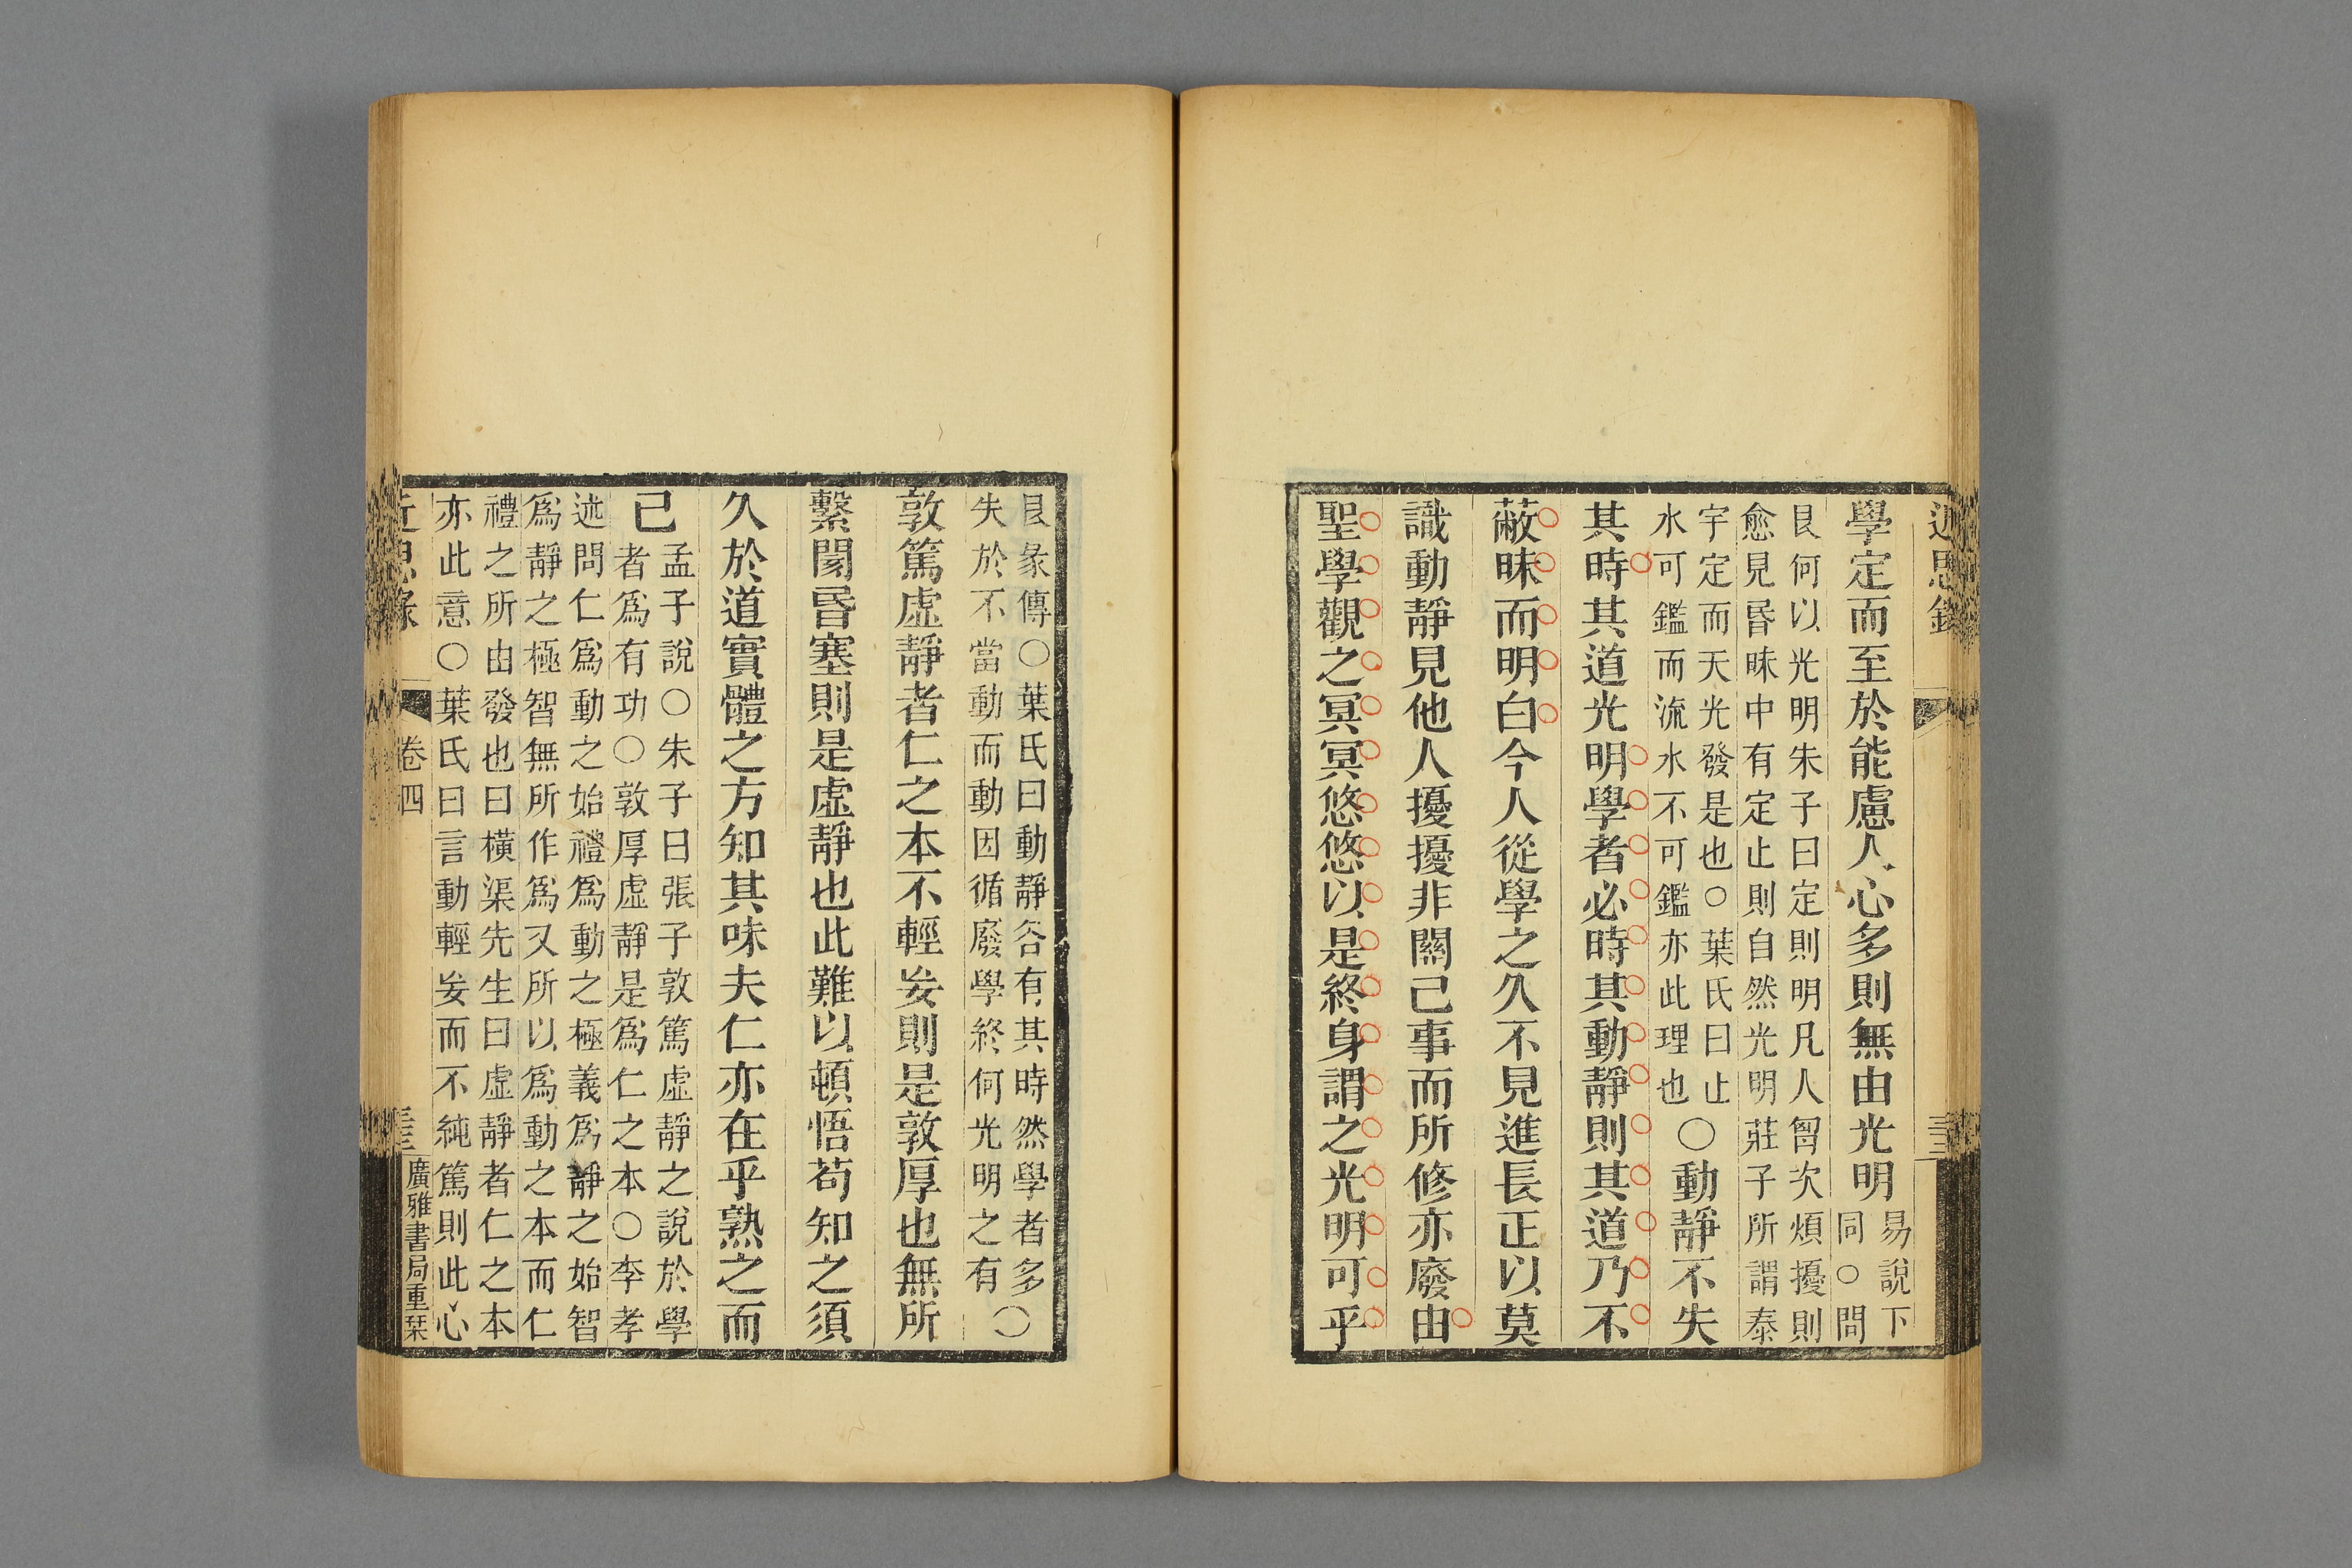 學定而至於能慮人心多則無由光明易說下
同○問
艮何以光明朱子曰定則明凡人胷次煩擾則
愈見昬昧中有定止則自然光明莊子所謂泰
宇定而天光發是也○葉氏曰止
水可鑑而流水不可鑑亦此理也
○動靜不失
其時其道光明學者必時其動靜則其道乃不
蔽昧而明白今人從學之久不見進長正以莫
識動靜見他人擾擾非關己事而所修亦廢由
聖學觀之冥冥悠悠以是終身謂之光明可乎
艮彖傳○葉氏曰動靜各有其時然學者多
失於不當動而動因循廢學終何光明之有
○
敦篤虛靜者仁之本不輕妄則是敦厚也無所
繫閡昬塞則是虛靜也此難以頓悟苟知之須
久於道實體之方知其味夫仁亦在乎熟之而
己
孟子說○朱子曰張子敦篤虛靜之說於學
者爲有功○敦厚虛靜是爲仁之本○李孝
述問仁爲動之始禮爲動之極義爲靜之始智
爲靜之極智無所作爲又所以爲動之本而仁
禮之所由發也曰橫渠先生曰虛靜者仁之本
亦此意○葉氏曰言動輕妄而不純篤則此心
近思錄
卷四
廣雅書局重栞